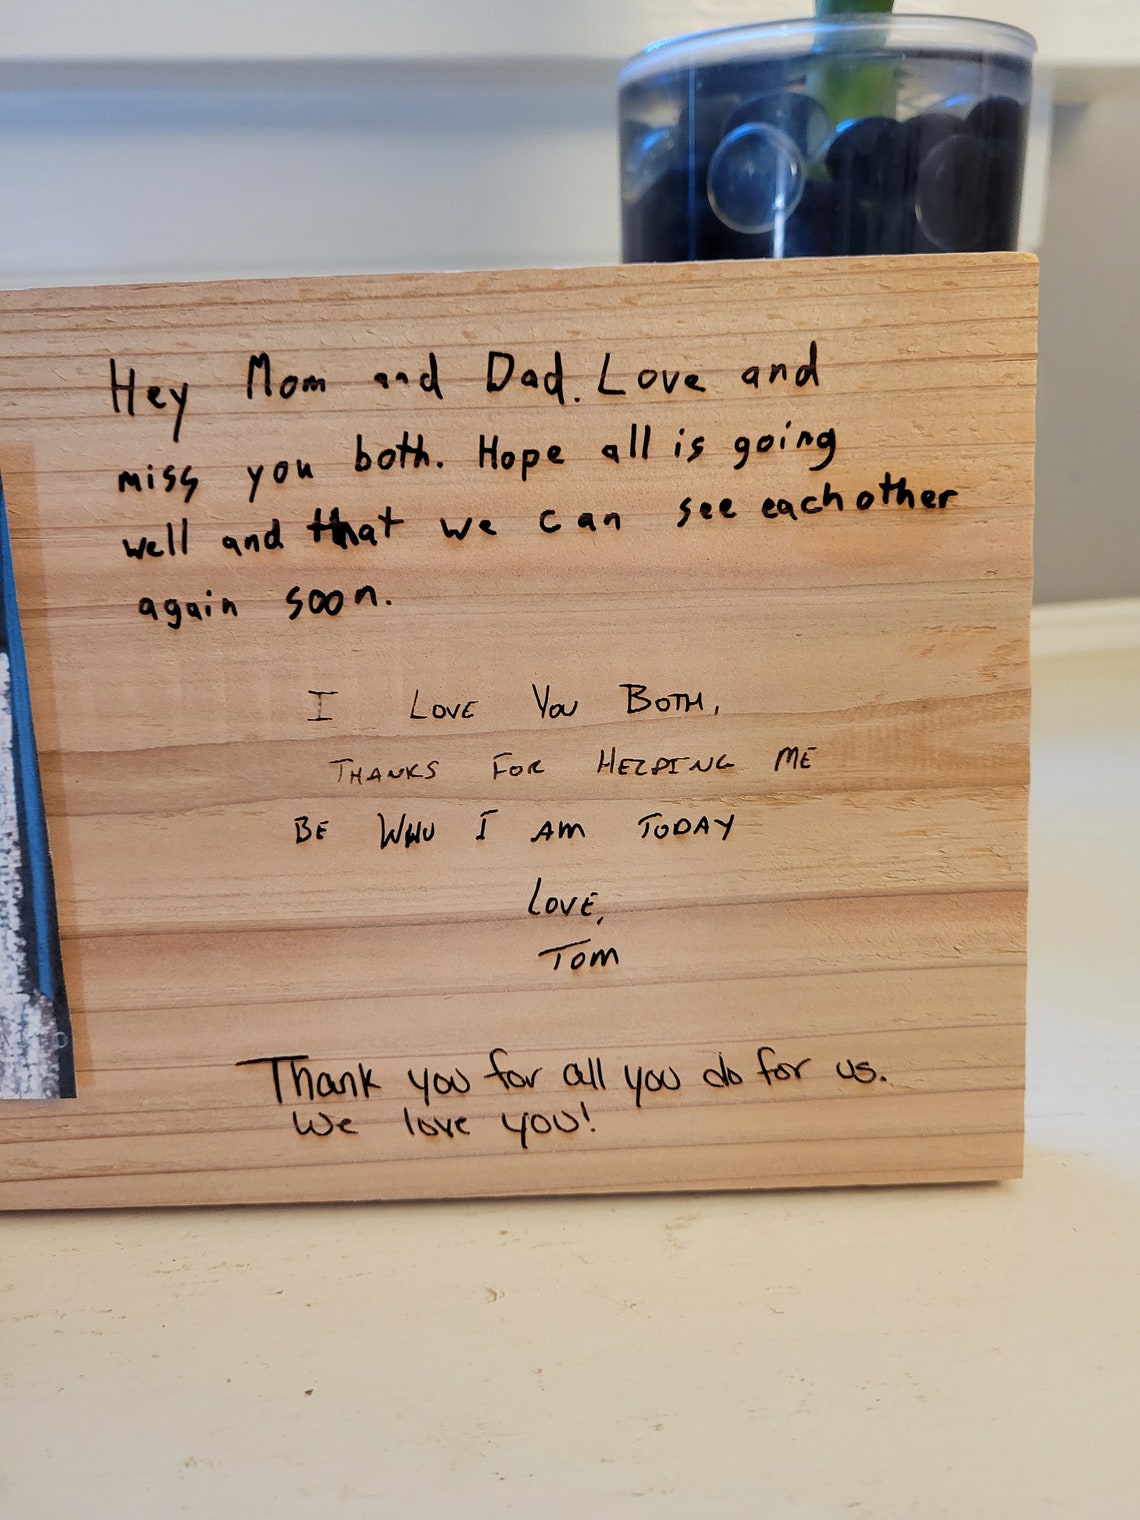 Hey Mom and Dad. Love and
miss you both. Hope all is going
well and that we can see each other
again soon.
I LOVE YOU BOTH,
THANKS FOR HELPING ME
BE WHO I AM TODAY
LOVE,
TOM
Thank you for all you do for us.
We love you!